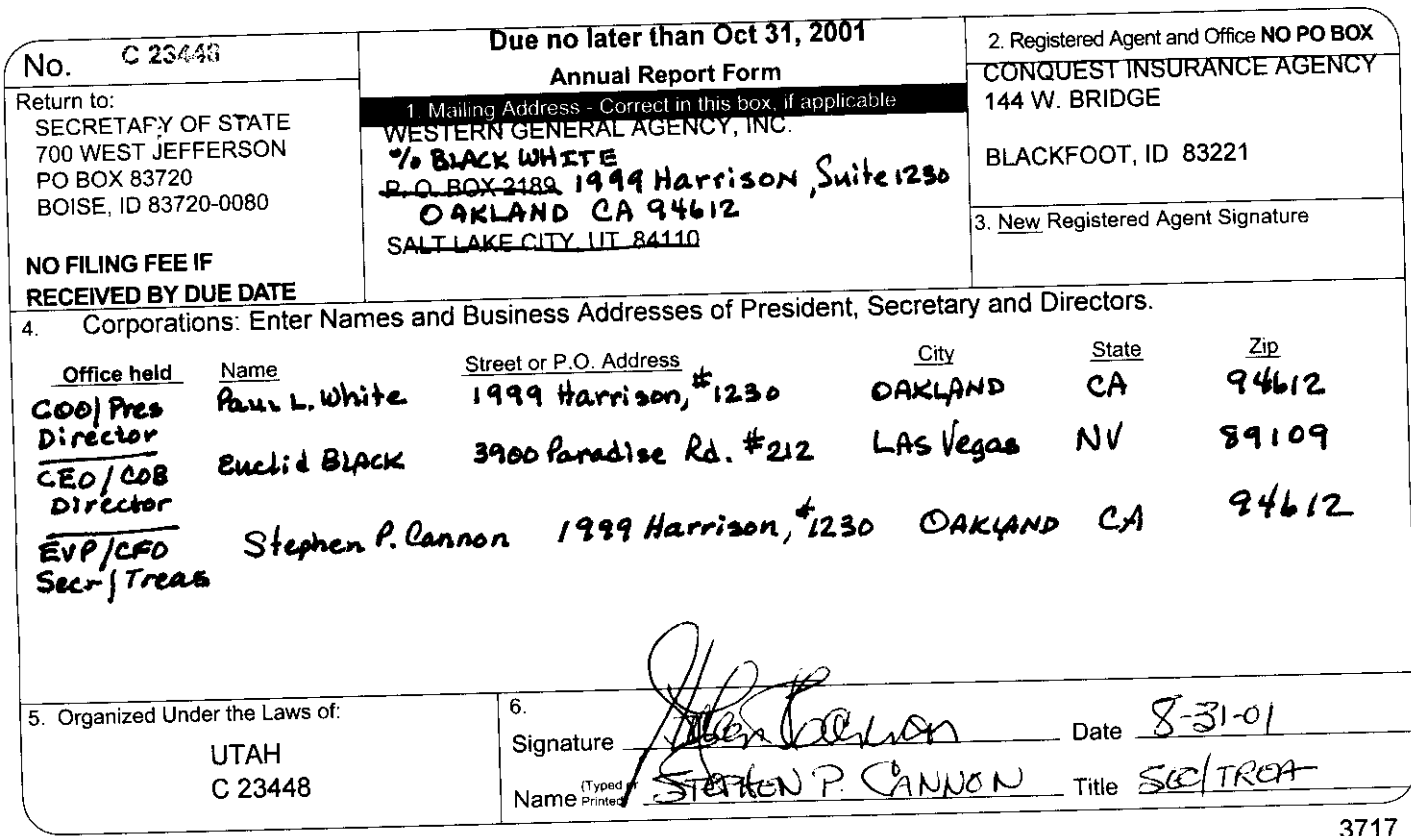 No. C 23448
Return to:
SECRETARY OF STATE
700 WEST JEFFERSON
PO BOX 83720
BOISE, ID 83720-0080
NO FILING FEE IF
RECEIVED BY DUE DATE
Due no later than Oct 31, 2001
Annual Report Form
1. Mailing Address - Correct in this box, if applicable
WESTERN GENERAL AGENCY, INC.
% BLACK WHITE
P. O. BOX 2189 1999 Harrison, Suite 1230
OAKLAND CA 94612
SALT LAKE CITY UT 84110
2. Registered Agent and Office NO PO BOX
CONQUEST INSURANCE AGENCY
144 W. BRIDGE
BLACKFOOT, ID 83221
3. New Registered Agent Signature
4. Corporations: Enter Names and Business Addresses of President, Secretary and Directors.
Office held Name Street or P.O. Address City State Zip
COO/Pres Paul L. White 1999 Harrison, #1230 OAKLAND CA 94612
Director
CEO/COB Euclid BLACK 3900 Paradise Rd. #212 LAS Vegas NV 89109
Director
EVP/CFO Stephen P. Cannon 1999 Harrison, #1230 OAKLAND CA 94612
Secr/Treas
5. Organized Under the Laws of:
UTAH
C 23448
6.
Signature Stephen P Cannon Date 8-31-01
Name (Typed or Printed) STEPHEN P. CANNON Title SEC/TREA
3717